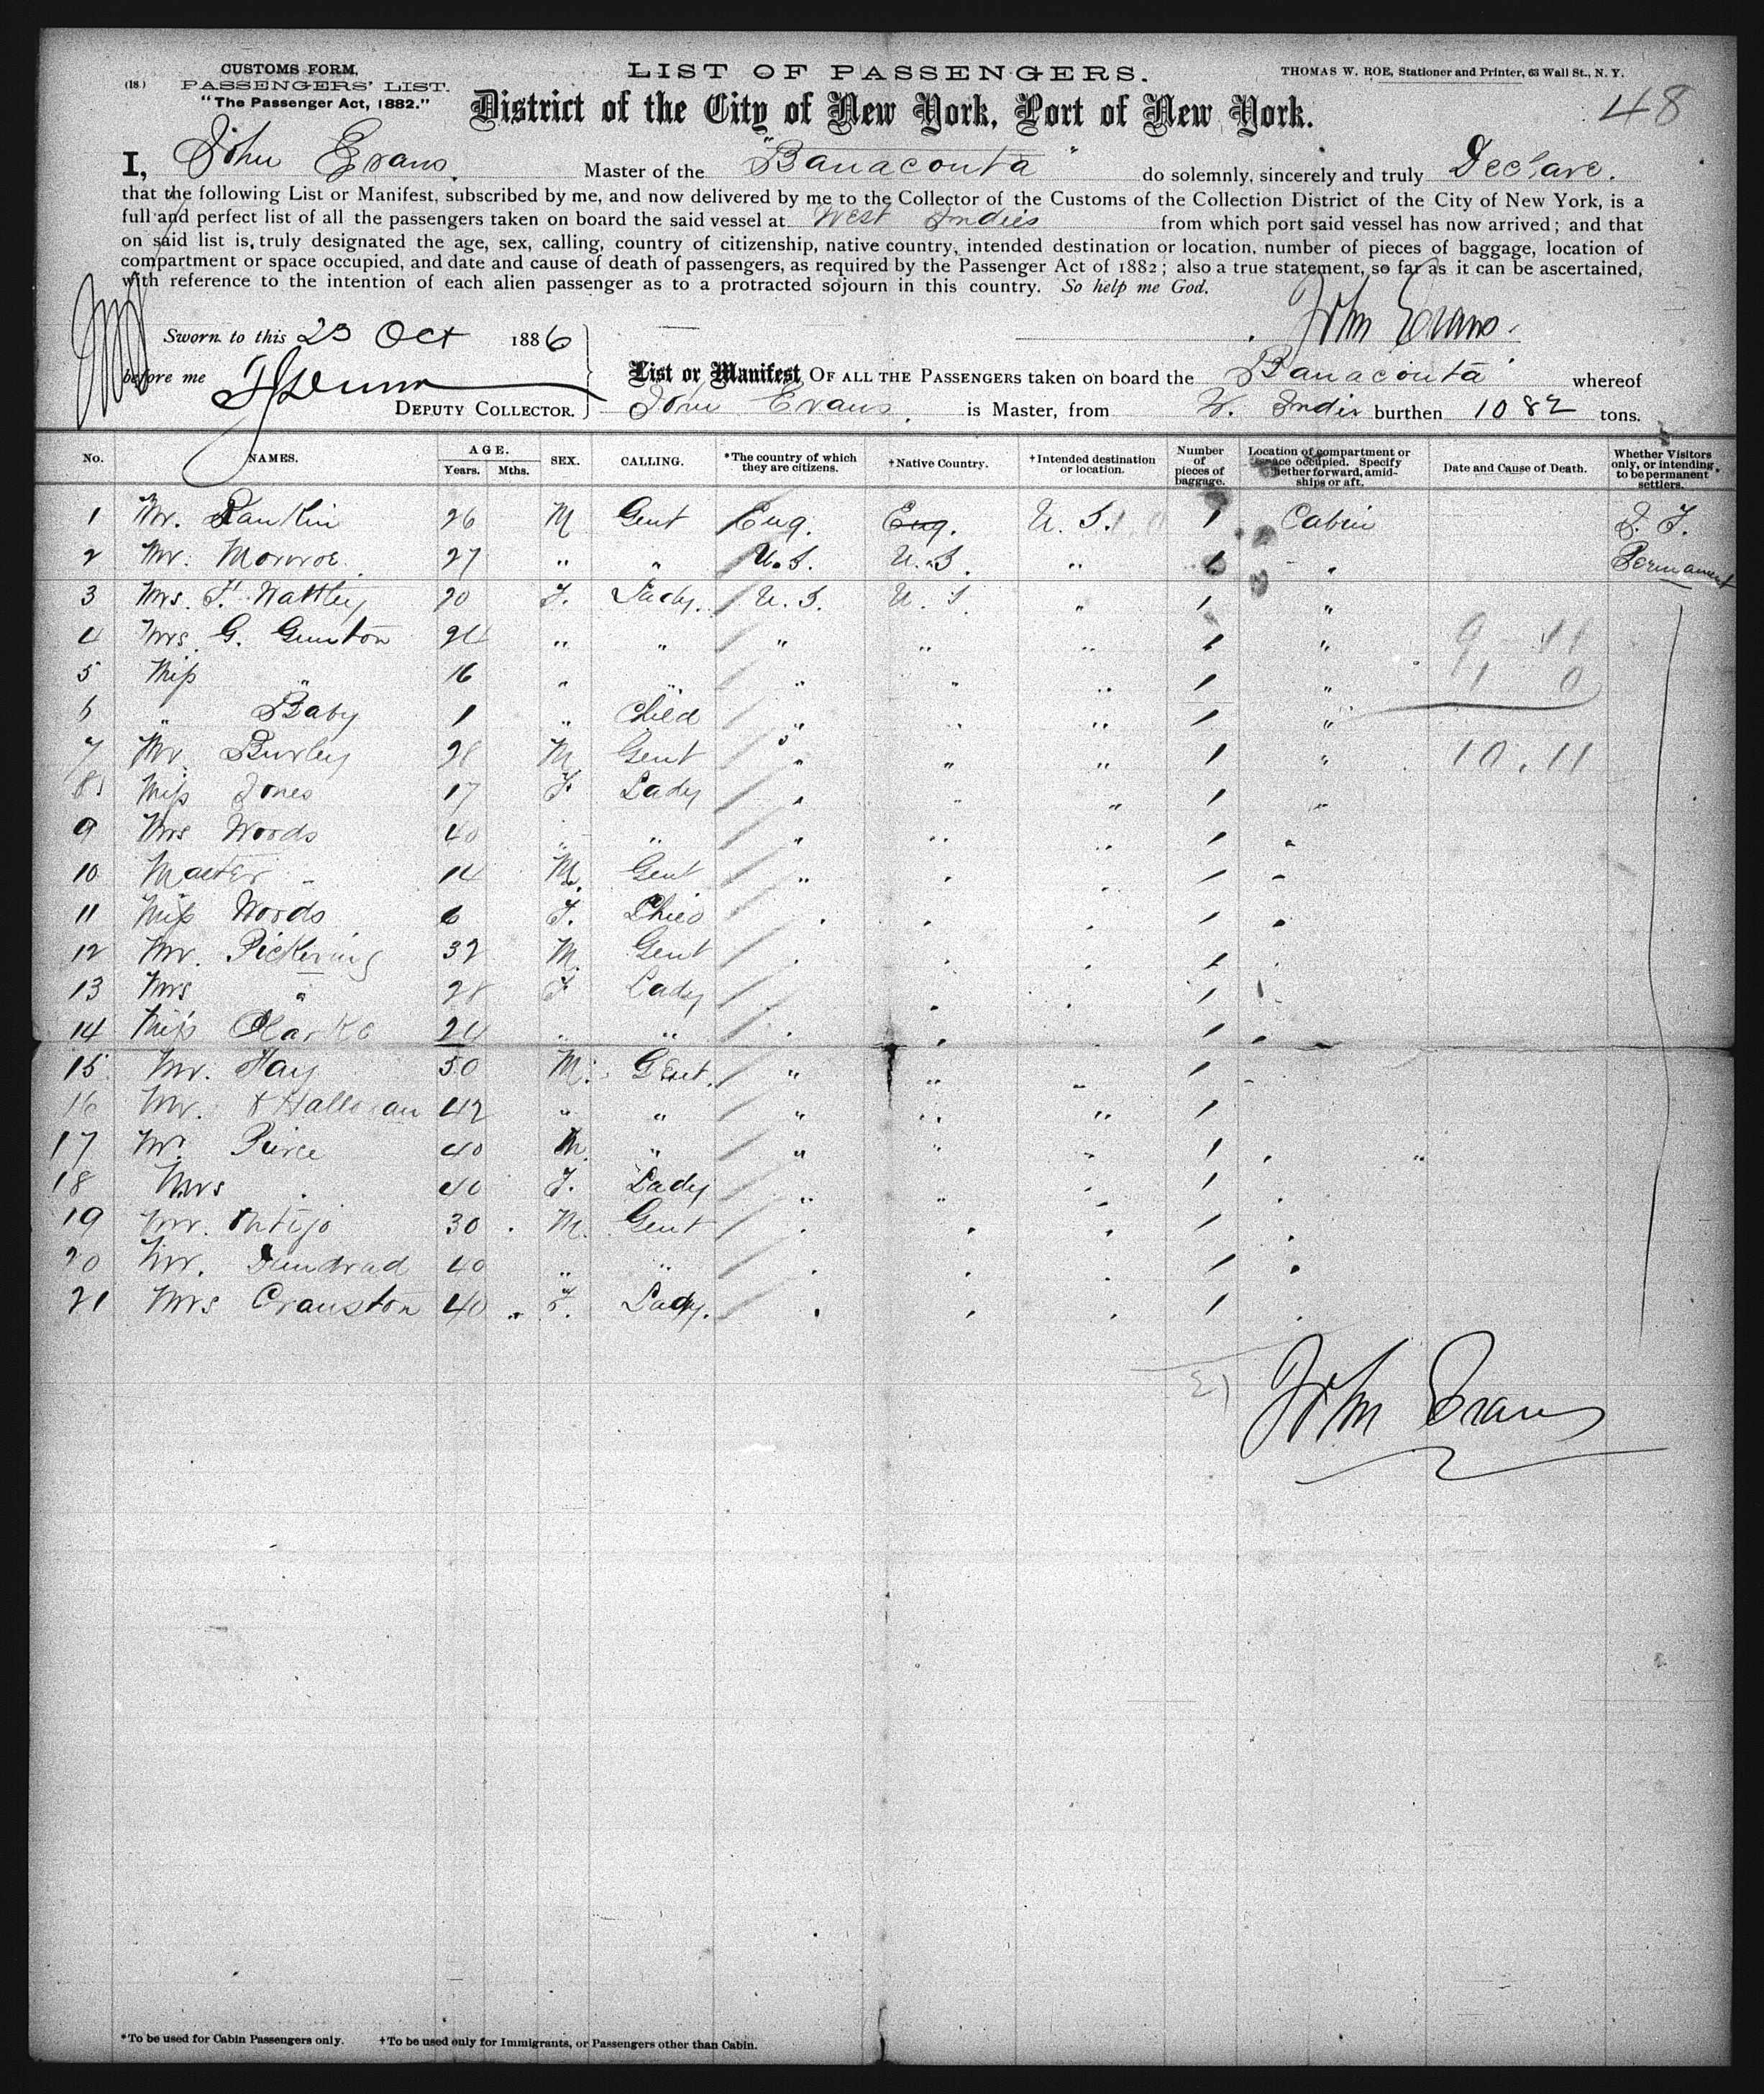 (18.)
CUSTOMS FORM.
PASSENGERS' LIST.
"The Passenger Act, 1882."
LIST OF PASSENGERS.
THOMAS W. ROE, Stationer and Printer, 63 Wall St., N. Y.
District of the City of New York, Port of New York.
48
I, John Evans. Master of the "Banaconta" do solemnly, sincerely and truly Declare.
that the following List or Manifest, subscribed by me, and now delivered by me to the Collector of the Customs of the Collection District of the City of New York, is a
full and perfect list of all the passengers taken on board the said vessel at West Indies from which port said vessel has now arrived; and that
on said list is truly designated the age, sex, calling, country of citizenship, native country, intended destination or location, number of pieces of baggage, location of
compartment or space occupied, and date and cause of death of passengers, as required by the Passenger Act of 1882; also a true statement, so far as it can be ascertained,
with reference to the intention of each alien passenger as to a protracted sojourn in this country. So help me God.
John Evans.
Sworn to this 23 Oct 1886
before me
DEPUTY COLLECTOR.
List or Manifest OF ALL THE PASSENGERS taken on board the Banaconta whereof
John Evans. is Master, from W. Indies burthen 1082 tons.
No. NAMES. AGE. Years. Mths. SEX. CALLING. *The country of which they are citizens. †Native Country. †Intended destination or location. Number of pieces of baggage. Location of compartment or space occupied. Specify whether forward, amidships or aft. Date and Cause of Death. Whether Visitors only, or intending to be permanent settlers.
1 Mr. Rankin 26 M Gent Eng. Eng. U. S. 1 Cabin
2 Mr. Monroe 27 " " U.S. U.S. " 1 " Permanent
3 Mrs. F. Wattley 20 F. Lady. U. S. U. S. " 1 "
4 Mrs. G. Gunston 24 " " " " " 1 "
5 Miss " 16 " " " " " 1 "
6 " Baby 1 " Child " " " 1 "
7 Mr. Burley M Gent " " " 1 "
10. 11
8 Miss Jones 17 F. Lady " " " 1 "
9 Mrs Woods 40 " " " " " 1 "
10 Master " 14 M. Gent " " " 1 "
11 Miss Woods 6 F. Child " " " 1 "
12 Mr. Pickering 32 M. Gent " " " 1 "
13 Mrs " 28 F Lady " " " 1 "
14 Miss Clarke 24 " " " " " 1 "
15 Mr. Hay 50 M. Gent. " " " 1 "
16 Mr. O'Halloran 42 " " " " " 1
17 Mr. Pierce 40 M. " " " " 1 " "
18 Mrs " 40 F. Lady " " " 1 "
19 Mr. 30 M. Gent " " " 1 "
20 Mr. 40 " " " " " 1 "
21 Mrs Cranston 40 F. Lady. " " " 1 "
21
John Evans
*To be used for Cabin Passengers only. †To be used only for Immigrants, or Passengers other than Cabin.